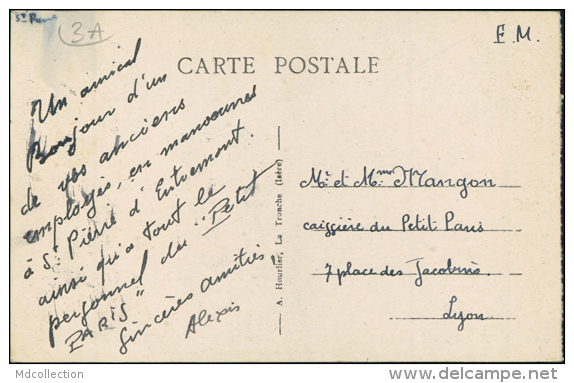 St Pierre
3A
F.M.
CARTE POSTALE
Un amical
Bonjour d'un
de vos anciens
employés, en manoeuvres
à St Pierre d'Entremont.
ainsi qu'a tout le
personnel du "Petit
PARIS"
Sincères amitiés
Alexis
A. Hourlier, La Tronche (Isère)
Mr et Mme Mangon
caissière du Petit Paris
7 place des Jacobins
Lyon
Mdcollection
www.delcampe.net